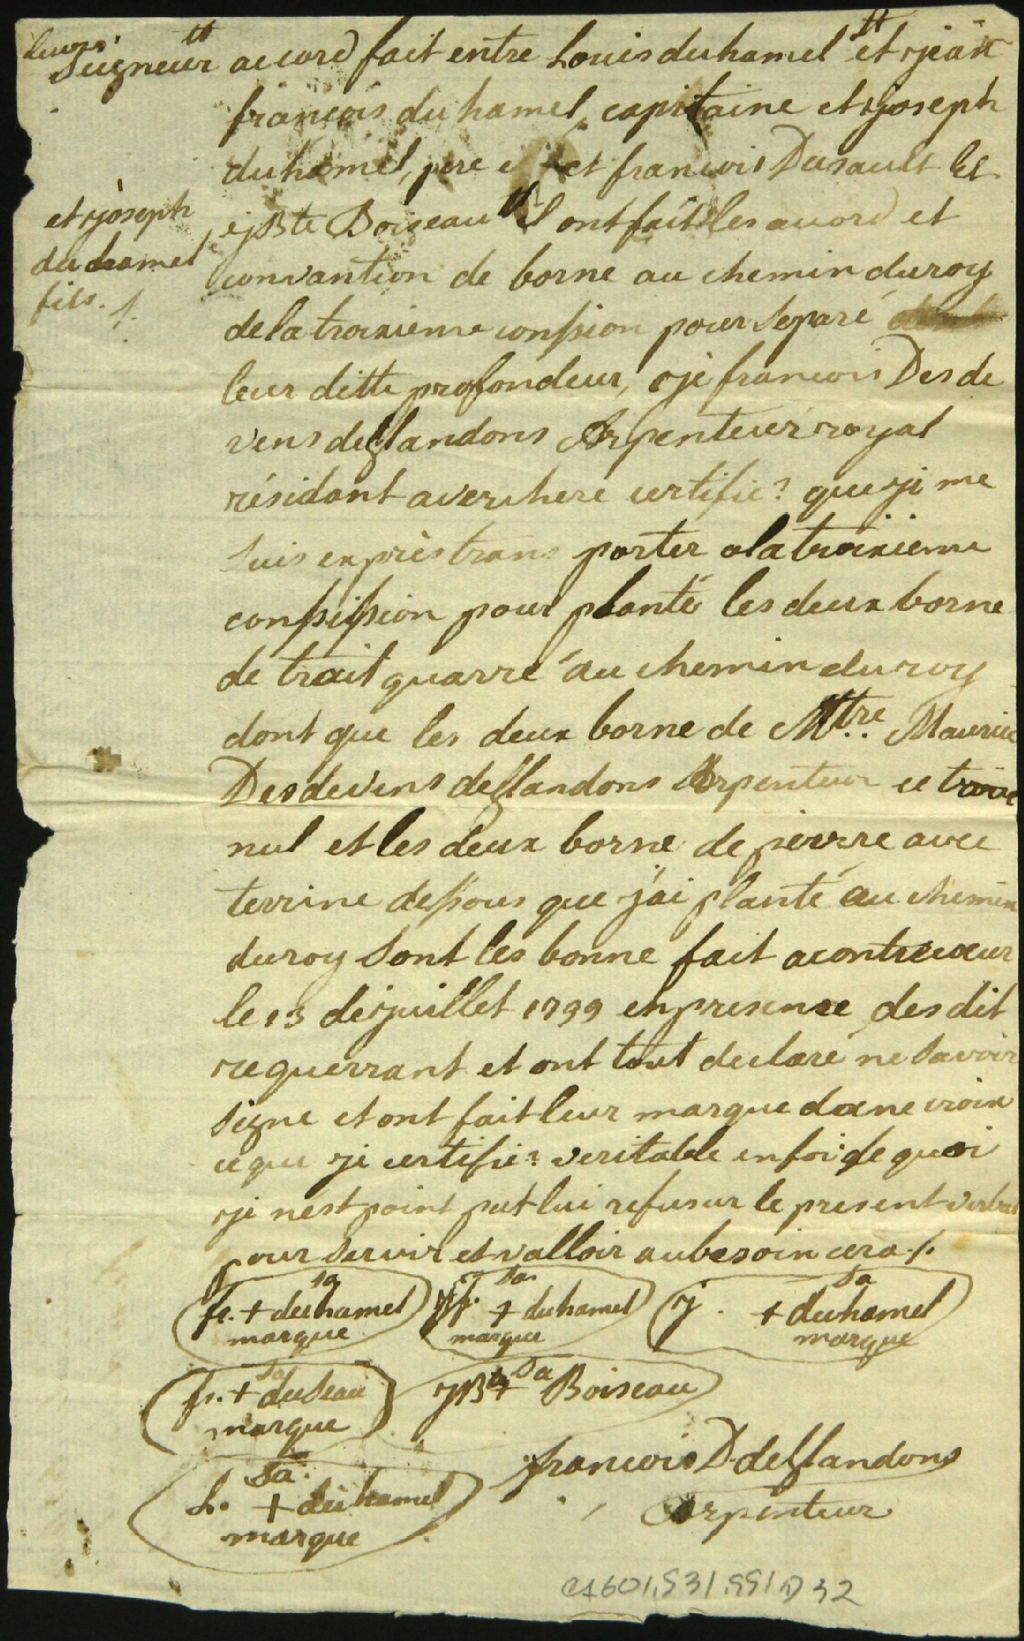 Seigneur accord fait entre Louis duhamel et jean
françois du hamel, capitaine et joseph
duhamel, pere et françois Dusault let
et joseph
du hamel
fils. /.
jBte Boiseau Il ont fait les acord et
convantion de borne au chemin du roy
de la troixieme consion pour separé
leur ditte profondeur, je francois Des de
vens desglandons Arpenteur royal
résidant a verchere certifie? que je me
suis exprès trans porter a la troixieme
consission pour planté les deux borne
de trait quarré au chemin du roy
dont que les deux borne de Mtre. Maurice
Desdevens desglandons Arpenteur ce trouve
nul et les deux borne de pierrre avec
terrine dessous que j'ai planté au chemin
du roy sont les bonne fait a contrecoeur
le 13 de juillet 1799 en presence des dit
requerrant et ont tout declaré ne savoir
signe et ont fait leur marque dune croix
ce que je certifie? veritable en foi de quoi
je nest point put lui refusur le present verbal
pour servir et valloir au besoin cera /.
sa
fr. + duhamel
marque
sa
jf. + duhamel
marque
sa
j. + duhamel
marque
sa
fr. + duseau
marque
sa
jBte + Boiseau
sa
L. + duhamel
marque
francois D. desglandons
Arpenteur
CA601,S31,SS1,D32